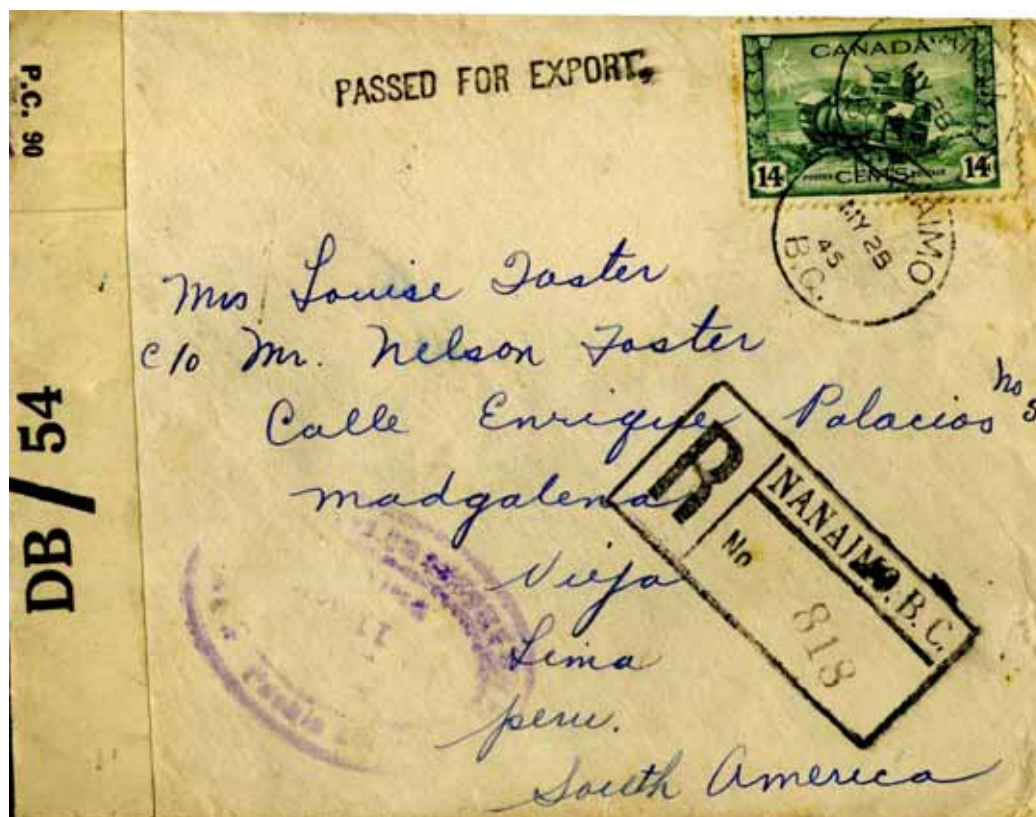 P.C. 90
DB/54
PASSED FOR EXPORT.
CANADA
14 CENTS 14
MY 28
NANAIMO
MY 28
45
B.C.
Mrs Louise Foster
c/o Mr. Nelson Foster
Calle Enrique Palacios No
Madgalena
Vieja
Lima
Peru.
South America
R
NANAIMO, B.C.
No
818